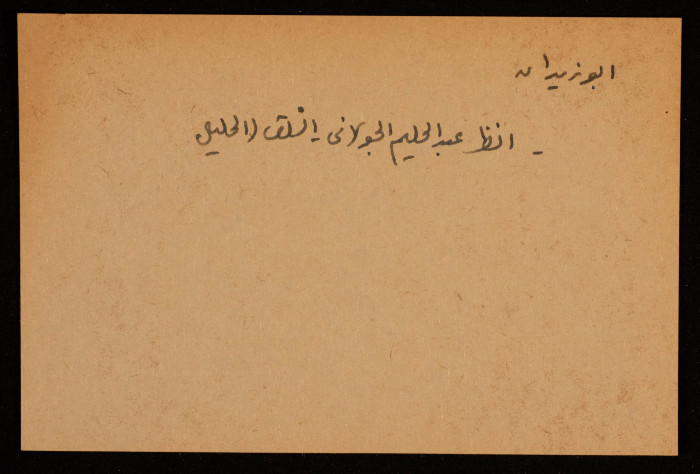 ابو زيدان
- انظر عبد الحليم الجولاني - الشلف (الخليل